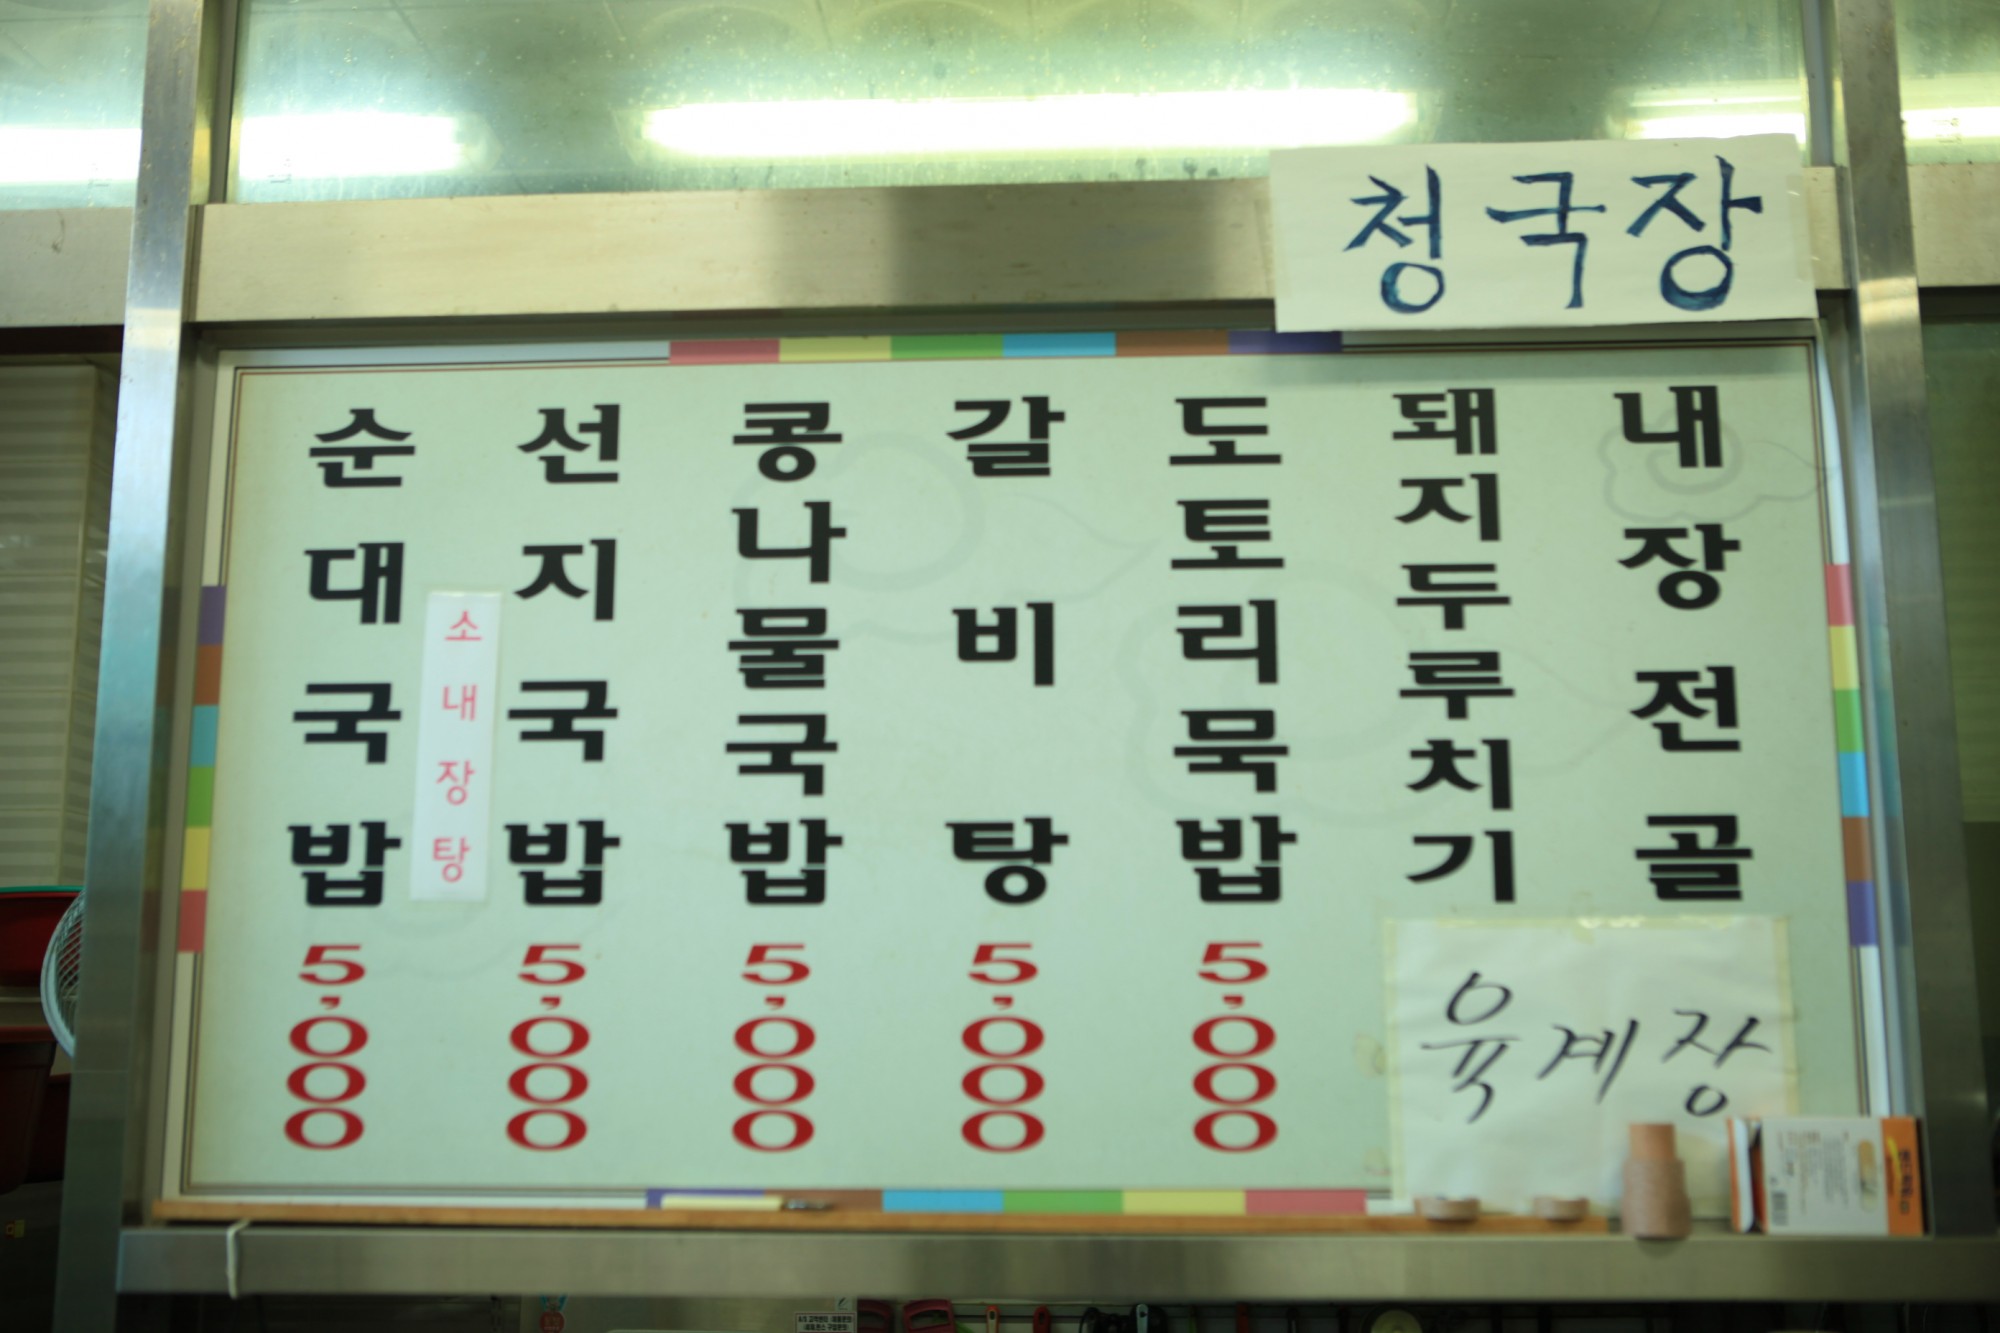 청국장
순대국밥
5,000
소내장탕
선지국밥
5,000
콩나물국밥
5,000
갈비탕
5,000
도토리묵밥
5,000
돼지두루치기
내장전골
육계장